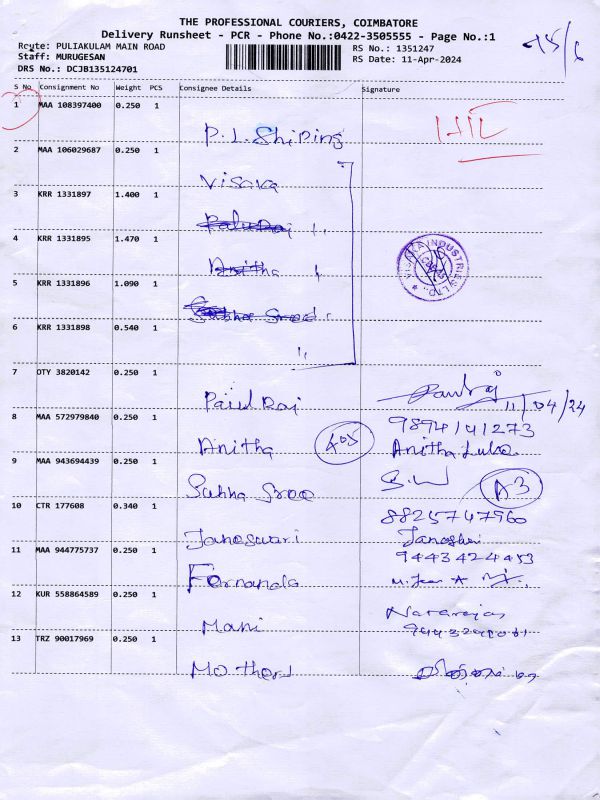 THE PROFESSIONAL COURIERS, COIMBATORE
Delivery Runsheet - PCR - Phone No.:0422-3505555 - Page No.:1
Route: PULIAKULAM MAIN ROAD
Staff: MURUGESAN
DRS No.: DCJB135124701
RS No.: 1351247
RS Date: 11-Apr-2024
S No Consignment No Weight PCS Consignee Details Signature
1 MAA 108397400 0.250 1 P.L. Shiping
2 MAA 106029687 0.250 1 Visaka
3 KRR 1331897 1.400 1
4 KRR 1331895 1.470 1 Anitha
VISAKA INDUSTRIES LTD
5 KRR 1331896 1.090 1
6 KRR 1331898 0.540 1
7 OTY 3820142 0.250 1 Paul Raj 11/04/24
8 MAA 572979840 0.250 1 Anitha 405 9894141273
Anitha
9 MAA 943694439 0.250 1 Sree A3
10 CTR 177608 0.340 1 8825747960
11 MAA 944775737 0.250 1 Fernando 9443424453
12 KUR 558864589 0.250 1 Mani Natarajan
13 TRZ 90017969 0.250 1 Motherd